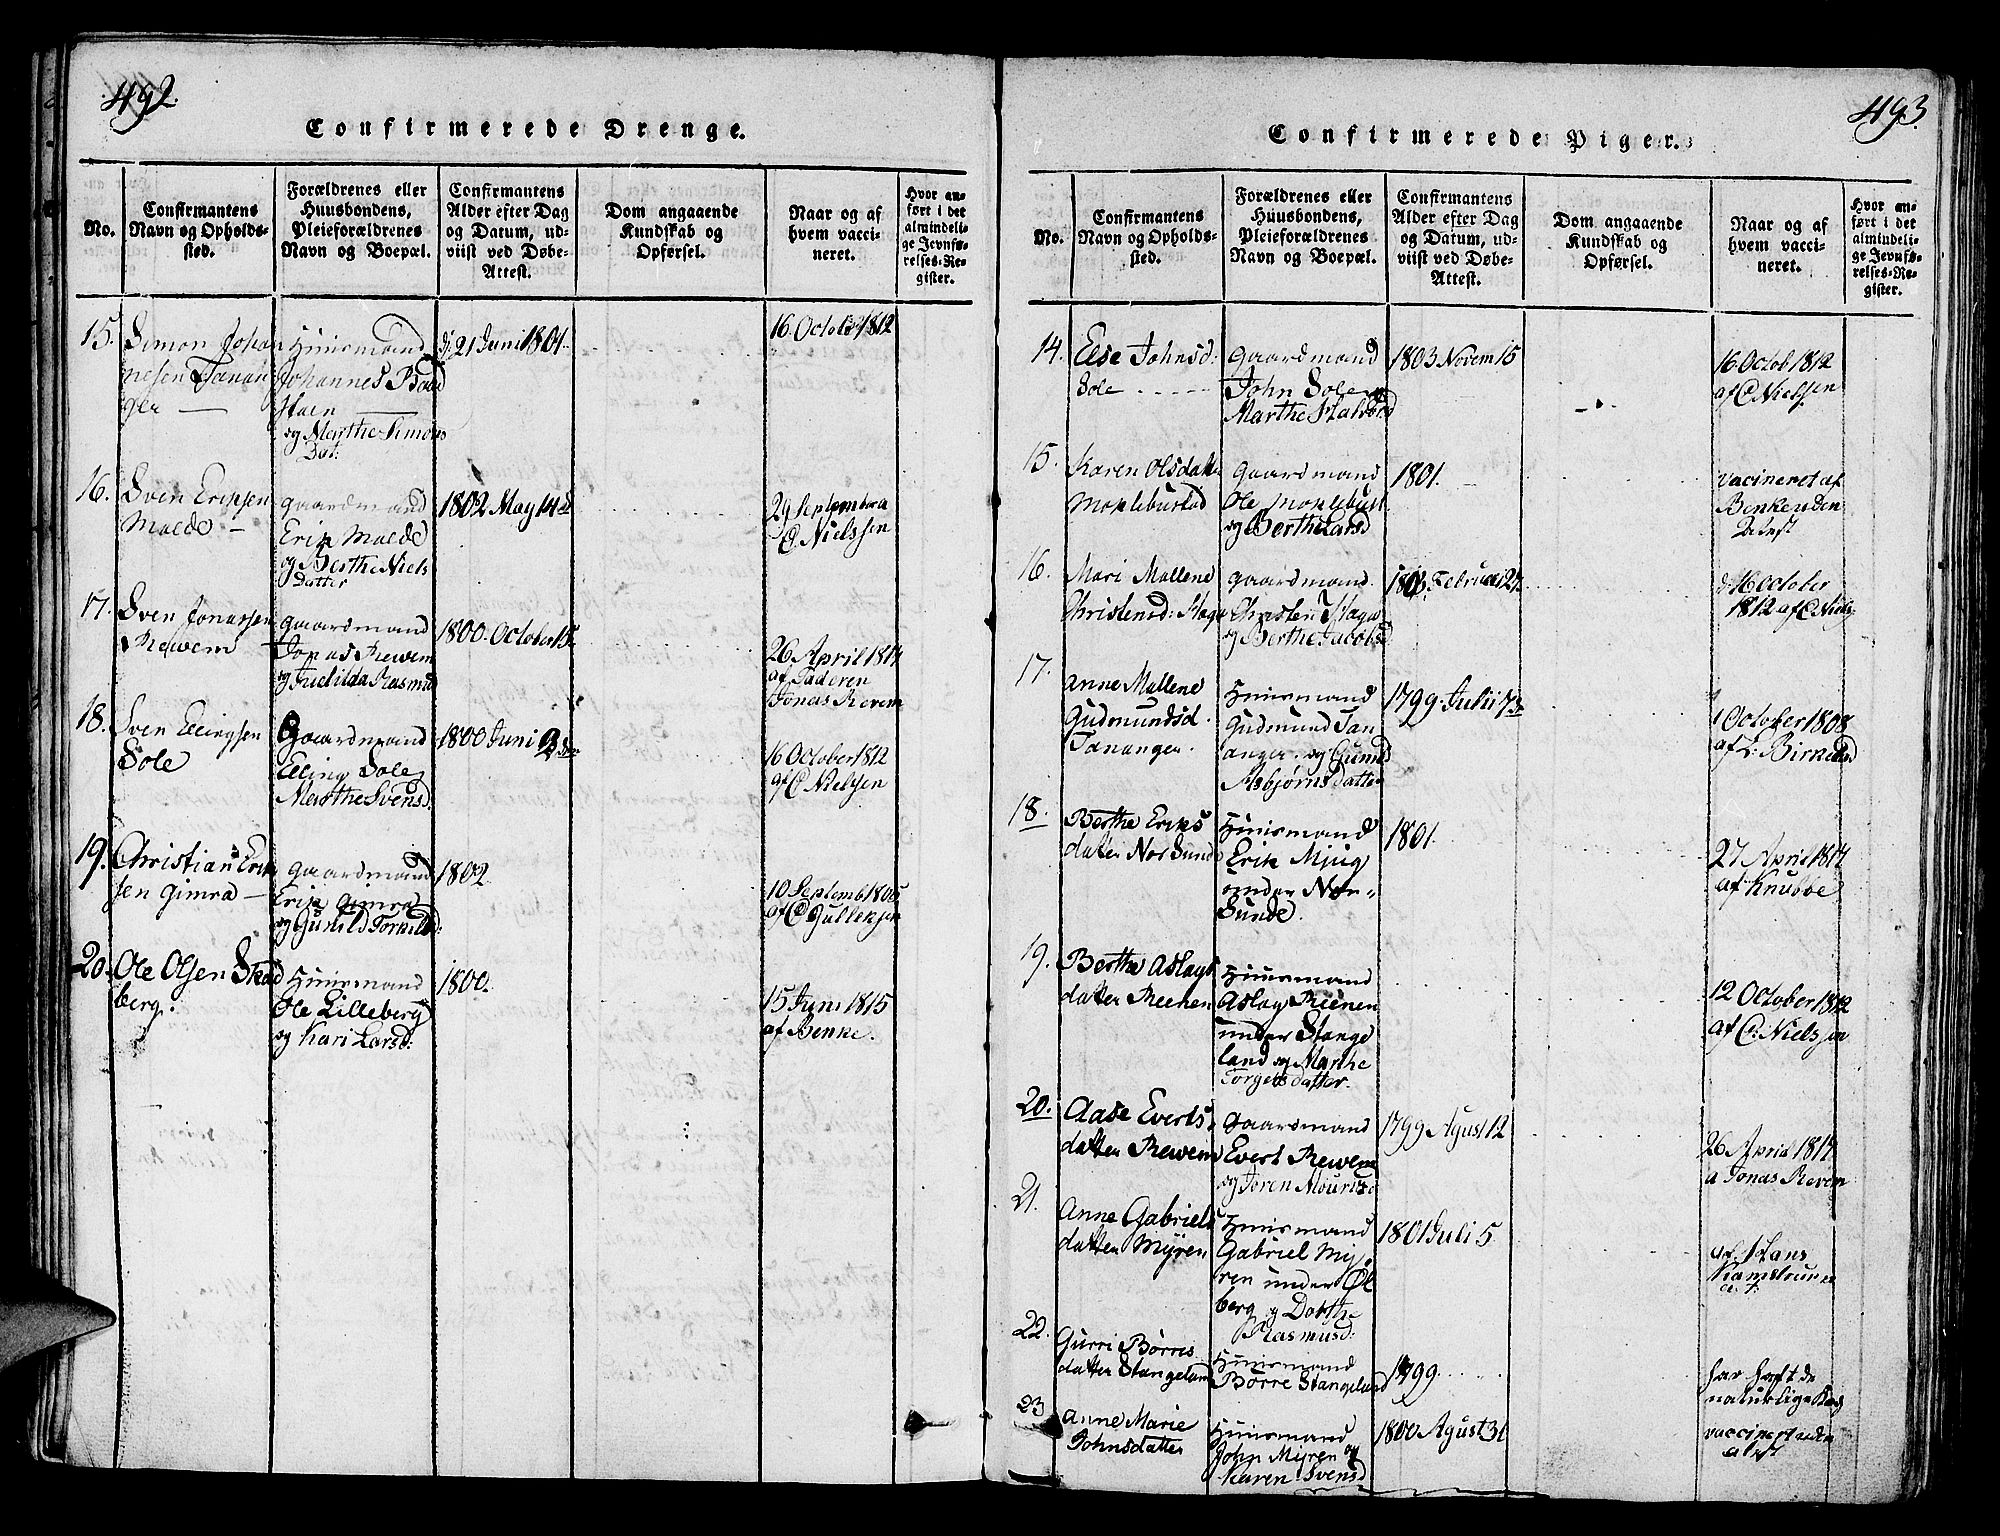 492.
Confirmerede Drenge.
No.
Confirmantens
Navn og Opholds-
sted.
Forældrenes eller
Huusbondens,
Pleieforældrenes
Navn og Boepæl.
Confirmantens
Alder efter Dag
og Datum, ud-
viist ved Døbe-
Attest.
Dom angaaende
Kundskab og
Opførsel.
Naar og af
hvem vacci-
neret.
Hvor an-
ført i det
almindeli-
ge Jevnfø-
relses-Re-
gister.
15.
Simon Johan
nesen Tanan
ger
Huusmand
Johannes
og Marthe Simons
Dat:
21 Juni 1801.
16 October 1812
16.
Sven Erichsen
Molde
Gaardmand
Erik Molde
og Berthe Niels
Datter
1802 May 14de
29 Septembr a
C Nielssen
17.
Sven Jonassen
Rewem
Gaardmand
Jonas Rewem
og Rasmusd
1800. October
26 April 1814
af Faderen
Jonas Revem
18.
Sven Ellingsen
Sole
Gaardmand
Elling Sole
Marthe Svensd.
1800 Juni
16 October 1812
af C Nielsen
19.
Christian Erik
sen Gimra
Gaardmand
Erik Gimra
og Gunild Torkildd:
1802
10 Septemb 1805
af C Gulleksen
20.
Ole Olsen Skad
berg.
Huusmand
Ole Lilleberg
og Kari Larsd:
1800.
15 Juni 1815
af Benke.
493.
Confirmerede Piger.
No.
Confirmantens
Navn og Opholds-
sted.
Forældrenes eller
Huusbondens,
Pleieforældrenes
Navn og Boepæl.
Confirmantens
Alder efter Dag
og Datum, ud-
viist ved Døbe-
Attest.
Dom angaaende
Kundskab og
Opførsel.
Naar og af
hvem vacci-
neret.
Hvor an-
ført i det
almindeli-
ge Jevnfø-
relses-Re-
gister.
14.
Else Johnsd:
Sole
Gaardmand
John Sole og
Marthe
1803 Novem 15
16. Octob 1812
af C Nielsen
15.
Karen Olsdatter
Moklebustad
Gaardmand
Ole Moklebust
og Berthe Larsd
1801.
Vacineret af
Benke uden
Atest
16.
Mari Mallene
Christensd: Haga
Gaardmand.
Christen Haga
og Berthe Jacobsd
Februari 21.
16 October
1812 af C. Niels
17.
Anne Mallene
Gudmundsd.
Tananger.
Huusmand
Gudmund Tan
anger. og Gunild
Asbjørns datter
1799. Julii 7de
1 October 1808
af L. Birkeland
18.
Berthe Eriks
datter Nor Sunde
Huusmand
Erik Mjug
under Nor-
Sunde.
1801.
27 April 1814
af Knubbe
19.
Berthe Aslags
datter Reenen
Huusmand
Aslag Reenen
under Stange
land og Marthe
Torgersdatter.
12 October 1812
af C: Nielssen
20.
Aase Everts
datter Rewem
Gaardmand
Evert Rewem
og Joren Mouritzd
1799 Agust 12
26 April 1814
a Jonas Revem
21.
Anne Gabriels
datter Myren
Huusmand
Gabriel My
ren under Øl
berg og Dorthe
Rasmusd:
1801 Juli 5.
af Hans
22.
Gurri Børres
datter Stangeland
Huusmand
Børre Stangeland
1799.
har haft de
naturlige
23
Anne Marie
Johnsdatter
Huusmand
John Myren og
Karen Svensd
1800 Agust 31
vaccineret uden
atest